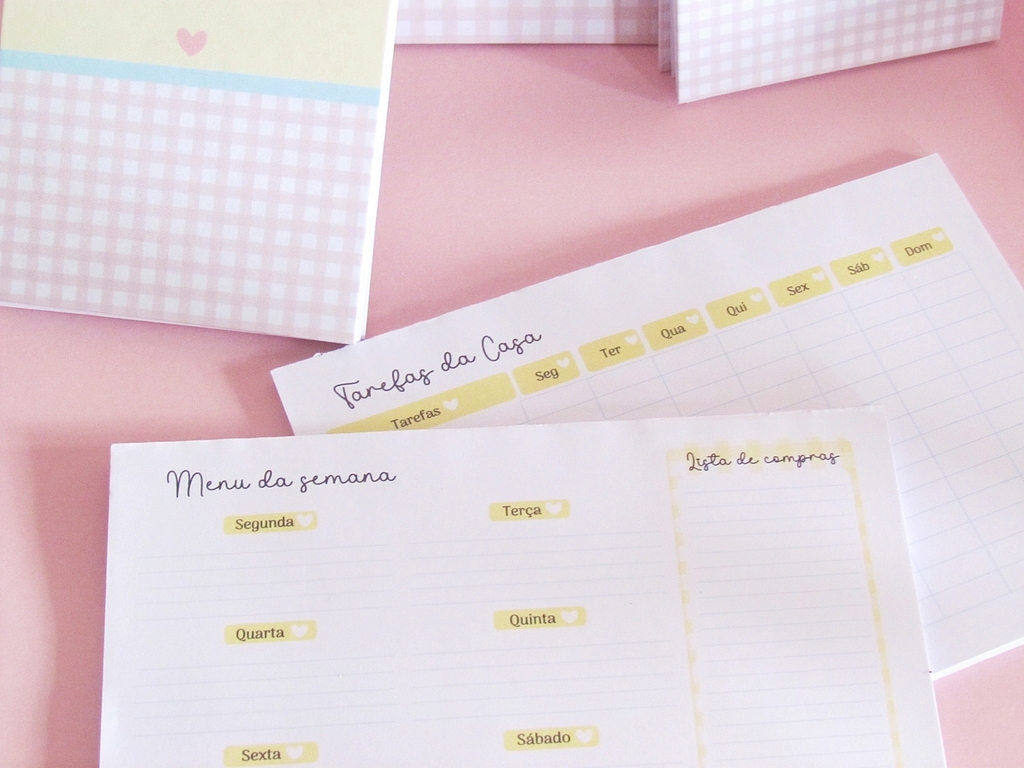 Tarefas da Casa
Tarefas Seg Ter Qua Qui Sex Sáb Dom
Menu da semana
Lista de compras
Segunda Terça
Quarta Quinta
Sexta Sábado